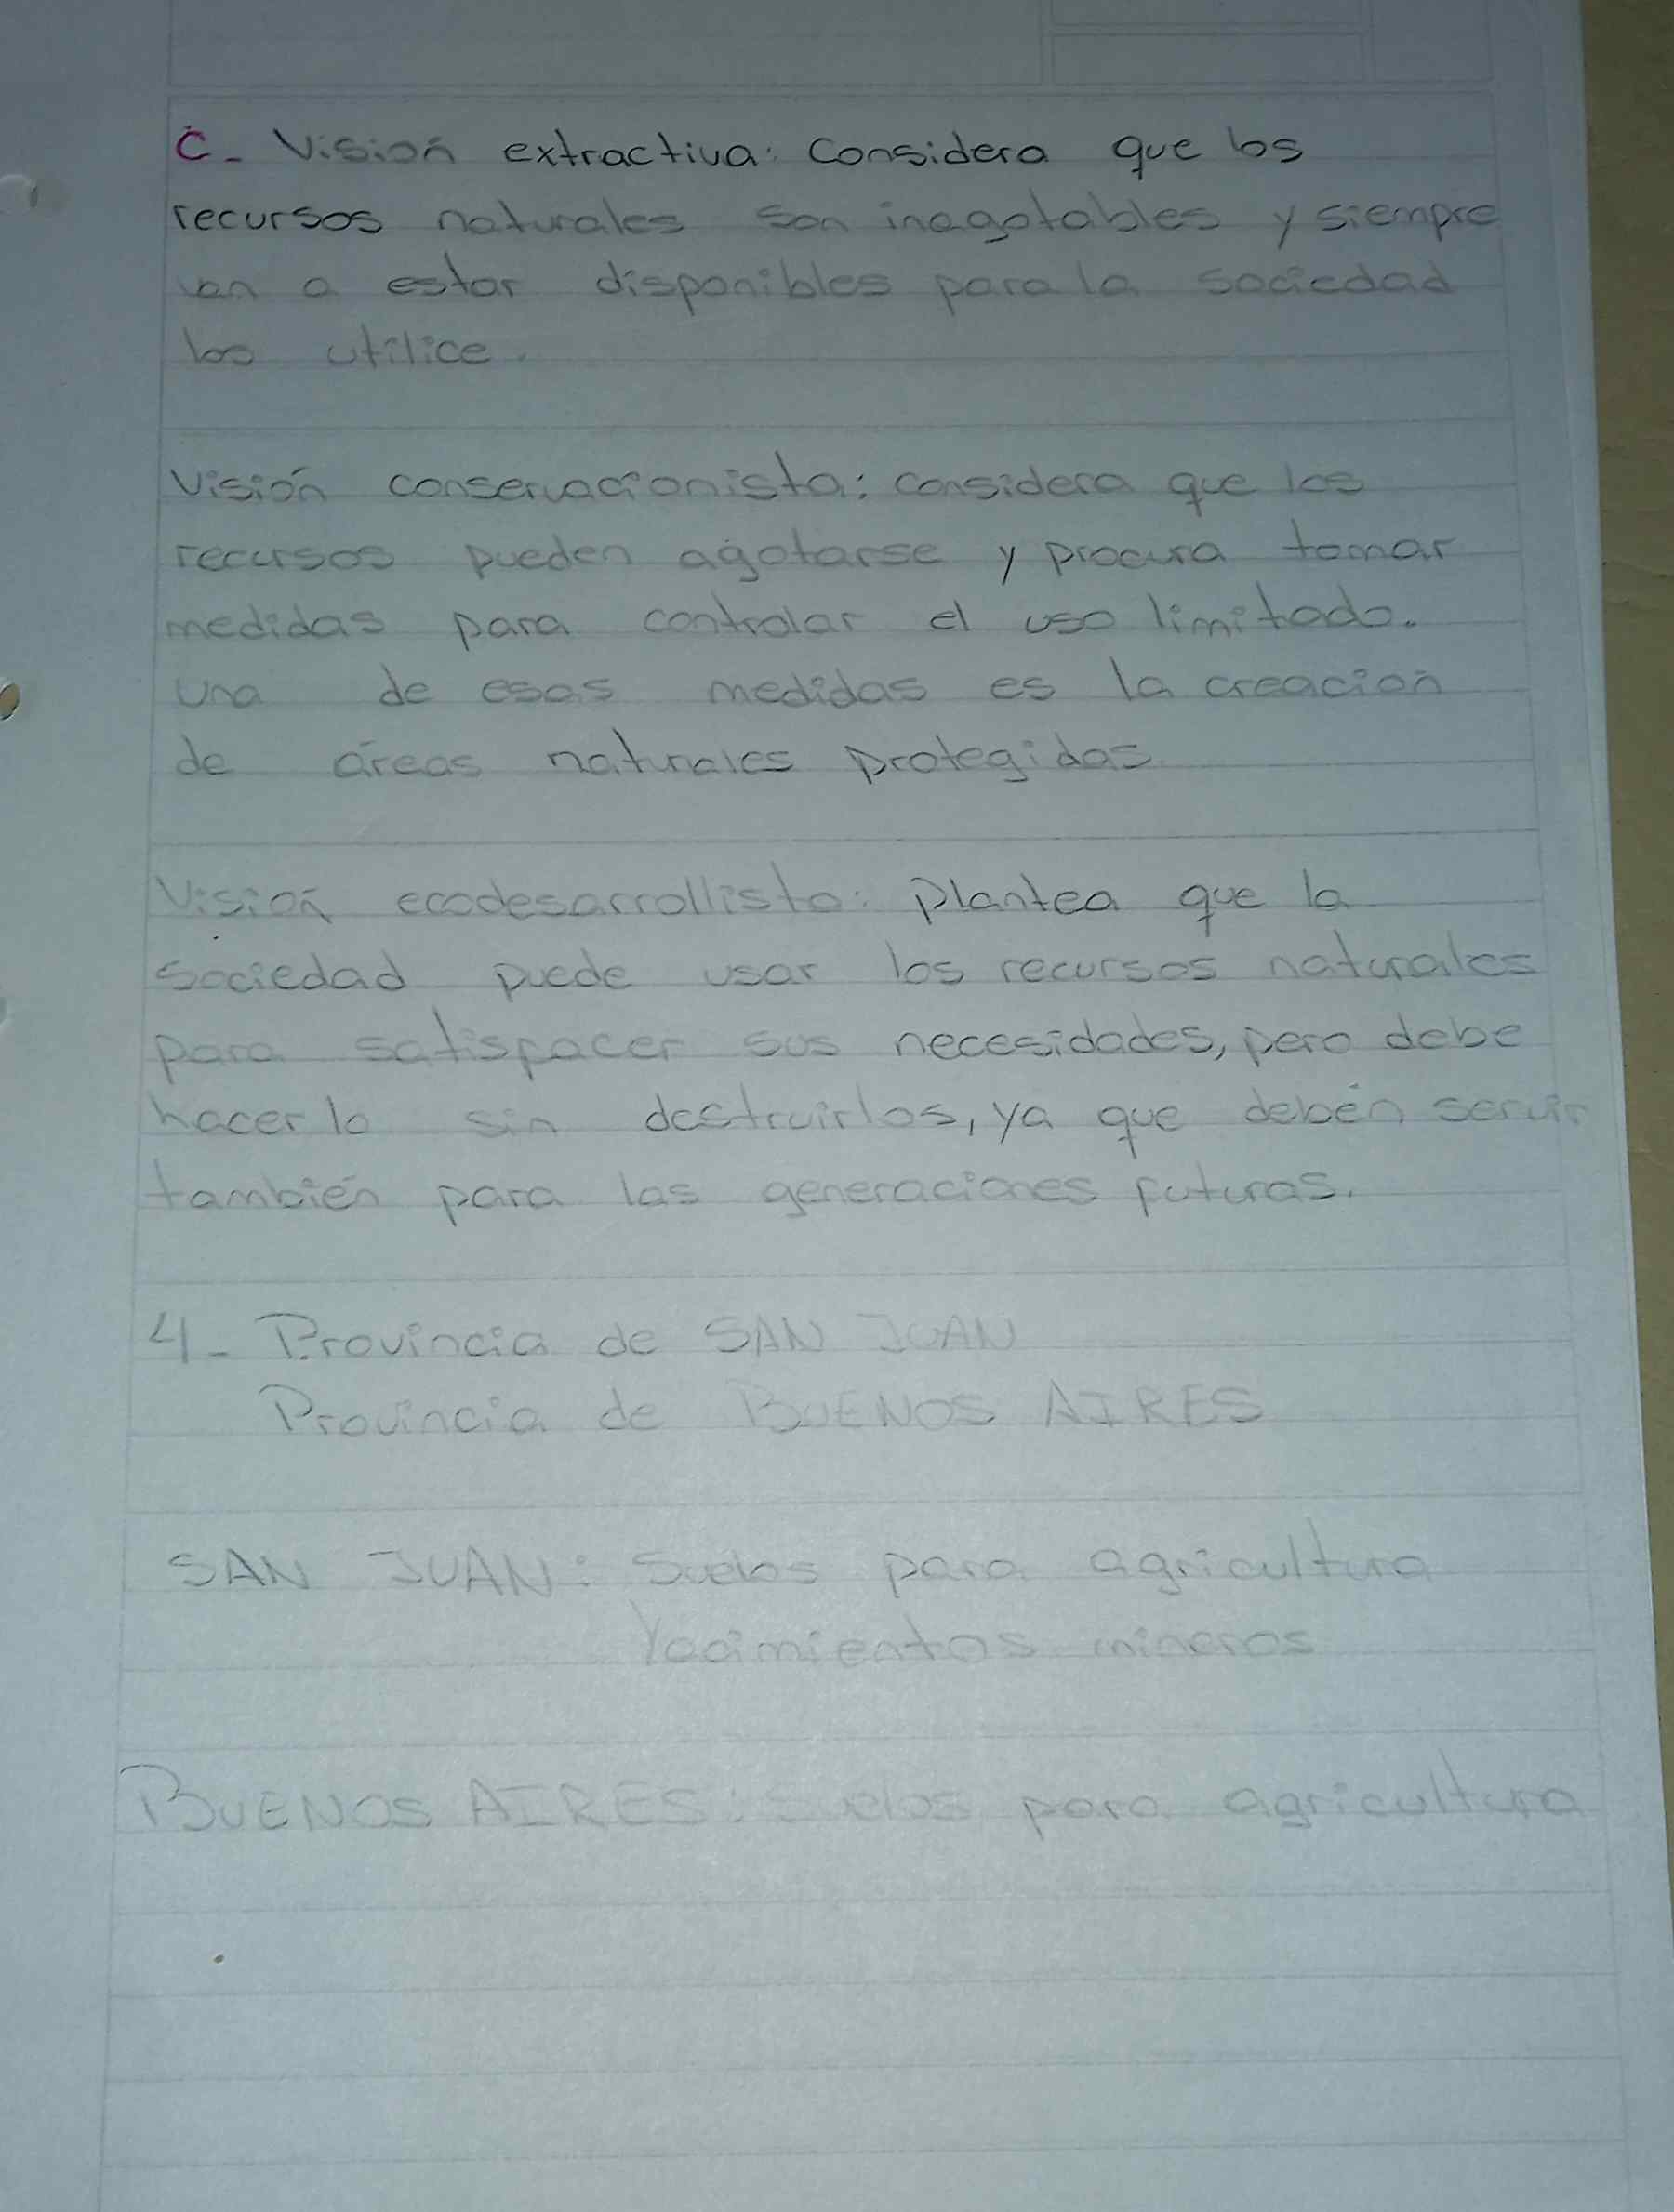 C- Visión extractiva: Considera que los
recursos naturales son inagotables y siempre
van a estar disponibles para la sociedad
los utilice.
Visión conservacionista: considera que los
recursos pueden agotarse y procura tomar
medidas para controlar el uso limitado.
una de esas medidas es la creación
de áreas naturales protegidas.
Visión ecodesarrollista: Plantea que la
sociedad puede usar los recursos naturales
para satispacer sus necesidades, pero debe
hacerlo sin destruirlos, ya que deben servir
también para las generaciones futuras.
4- Provincia de SAN JUAN
Provincia de BUENOS AIRES
SAN JUAN: Suelos para agricultura
Yacimientos mineros
BUENOS AIRES: Suelos para agricultura